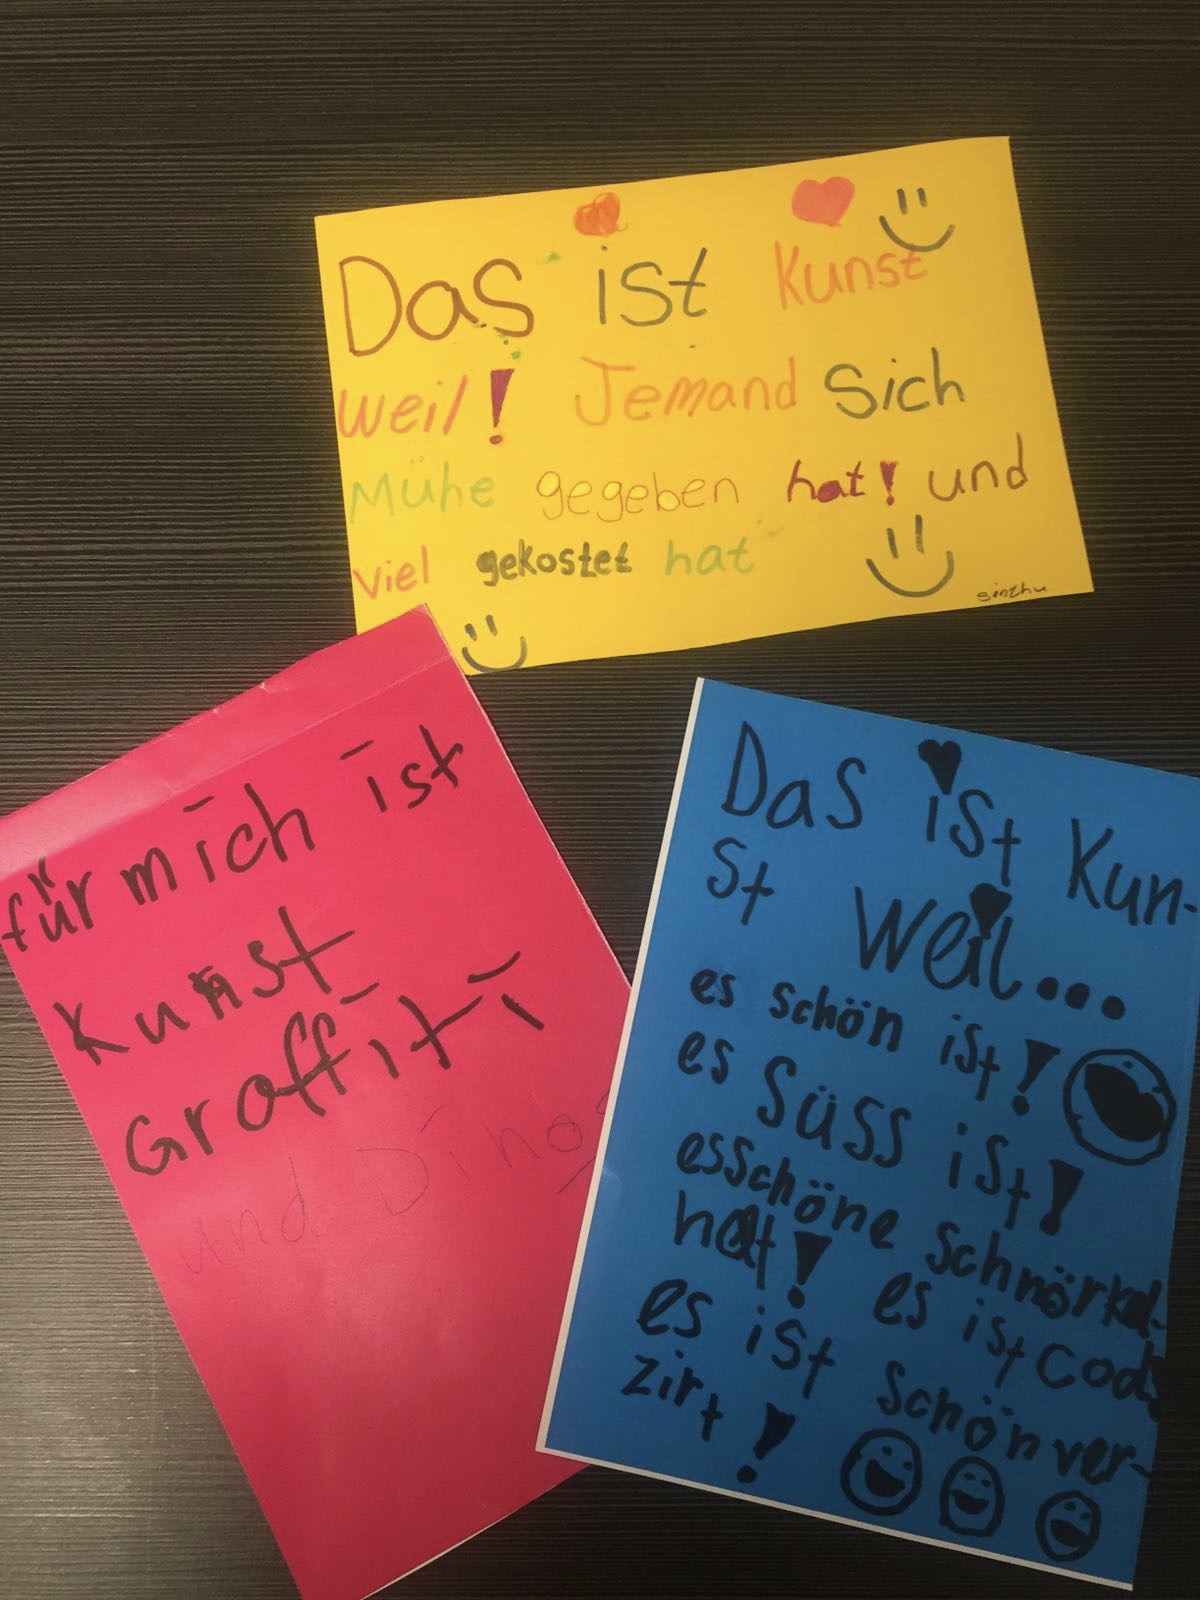 Das ist Kunst
weil! Jemand Sich
Mühe gegeben hat! und
viel gekostet hat
sinthu
für mich ist
Kunst
Graffiti
und Dinos
Das ist Kun-
St Weil...
es schön ist!
es Süss ist!
esschöne Schnörkel-
hat! es ist cool
es ist schönver-
zirt!